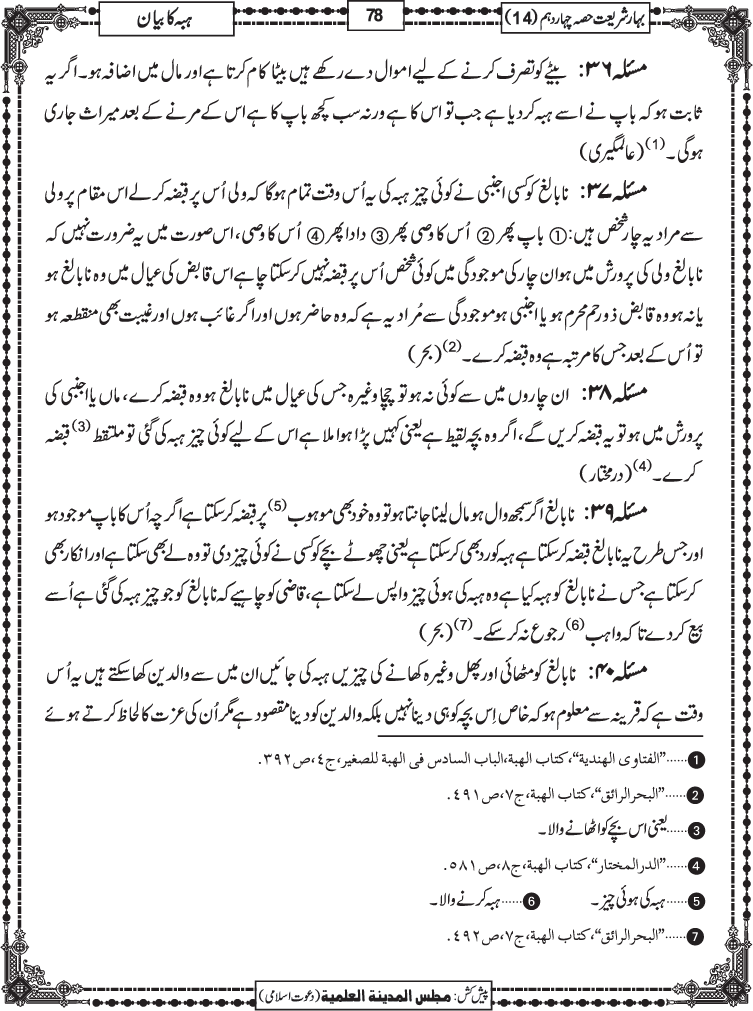 بہار شریعت حصہ چہاردہم (14)
78
ہبہ کا بیان
مسئلہ ۳۶: بیٹے کو تصرف کرنے کے لیے اموال دے رکھے ہیں بیٹا کام کرتا ہے اور مال میں اضافہ ہو۔ اگر یہ
ثابت ہو کہ باپ نے اسے ہبہ کر دیا ہے جب تو اس کا ہے ورنہ سب کچھ باپ کا ہے اس کے مرنے کے بعد میراث جاری
ہوگی۔(1) (عالمگیری)
مسئلہ ۳۷: نابالغ کو کسی اجنبی نے کوئی چیز ہبہ کی یہ اُس وقت تمام ہوگا کہ ولی اُس پر قبضہ کرلے اس مقام پر ولی
سے مراد یہ چار شخص ہیں: ① باپ پھر ② اُس کا وصی پھر ③ دادا پھر ④ اُس کا وصی، اس صورت میں یہ ضرورت نہیں کہ
نابالغ ولی کی پرورش میں ہو ان چار کی موجودگی میں کوئی شخص اُس پر قبضہ نہیں کرسکتا چاہے اس قابض کی عیال میں وہ نابالغ ہو
یا نہ ہو وہ قابض ذو رحم محرم ہو یا اجنبی ہو موجودگی سے مُراد یہ ہے کہ وہ حاضر ہوں اور اگر غائب ہوں اور غیبت بھی منقطعہ ہو
تو اُس کے بعد جس کا مرتبہ ہے وہ قبضہ کرے۔(2) (بحر)
مسئلہ ۳۸: ان چاروں میں سے کوئی نہ ہو تو چچا وغیرہ جس کی عیال میں نابالغ ہو وہ قبضہ کرے، ماں یا اجنبی کی
پرورش میں ہو تو یہ قبضہ کریں گے، اگر وہ بچہ لقیط ہے یعنی کہیں پڑا ہوا ملا ہے اس کے لیے کوئی چیز ہبہ کی گئی تو ملتقط(3) قبضہ
کرے۔(4) (درمختار)
مسئلہ ۳۹: نابالغ اگر سمجھ وال ہو مال لینا جانتا ہو تو وہ خود بھی موہوب(5) پر قبضہ کرسکتا ہے اگرچہ اُس کا باپ موجود ہو
اور جس طرح یہ نابالغ قبضہ کرسکتا ہے ہبہ کو رد بھی کرسکتا ہے یعنی چھوٹے بچے کو کسی نے کوئی چیز دی تو وہ لے بھی سکتا ہے اور انکار بھی
کرسکتا ہے جس نے نابالغ کو ہبہ کیا ہے وہ ہبہ کی ہوئی چیز واپس لے سکتا ہے، قاضی کو چاہیے کہ نابالغ کو جو چیز ہبہ کی گئی ہے اُسے
بیع کر دے تاکہ واہب(6) رجوع نہ کرسکے۔(7) (بحر)
مسئلہ ۴۰: نابالغ کو مٹھائی اور پھل وغیرہ کھانے کی چیزیں ہبہ کی جائیں ان میں سے والدین کھا سکتے ہیں یہ اُس
وقت ہے کہ قرینہ سے معلوم ہو کہ خاص اِس بچہ کو ہی دینا نہیں بلکہ والدین کو دینا مقصود ہے مگر اُن کی عزت کا لحاظ کرتے ہوئے
1......"الفتاوی الھندیۃ"، کتاب الھبۃ، الباب السادس فی الھبۃ للصغیر، ج٤، ص٣٩٢.
2......"البحرالرائق"، کتاب الھبۃ، ج٧، ص٤٩١.
3......یعنی اس بچے کو اٹھانے والا۔
4......"الدرالمختار"، کتاب الھبۃ، ج٨، ص٥٨١.
5......ہبہ کی ہوئی چیز۔ 6......ہبہ کرنے والا۔
7......"البحرالرائق"، کتاب الھبۃ، ج٧، ص٤٩٢.
پیش کش: مجلس المدینۃ العلمیۃ (دعوت اسلامی)